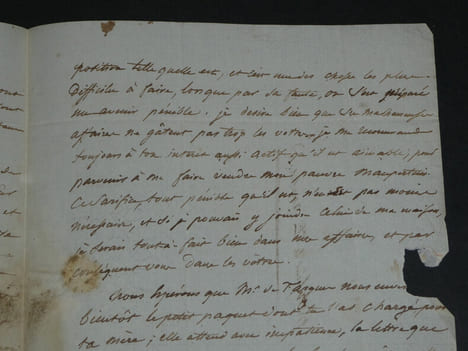 position telle quelle est, et c'est une des choses les plus
difficile à faire, lorsque par sa faute, on s'est préparé
un avenir pénible. je desire bien que de malheureuses
affaires ne gâtent pas trop les votres, je me recommande
toujours à ton interet aussi actif qu'il est aimable, pour
parvenir à me faire vendre mon pauvre
Ce sacrifice, tout pénible qu'il est, n'en est pas moins
nécessaire, et si je pouvais y joindre celui de ma maison,
je serais tout-à-fait bien dans mes affaires, et par
conséquent vous dans les vôtres.
Nous espérons que Mr. de nous enverra
bientôt le petit paquet dont tu l'as chargé pour
ta mère; elle attend avec impatience, la lettre que